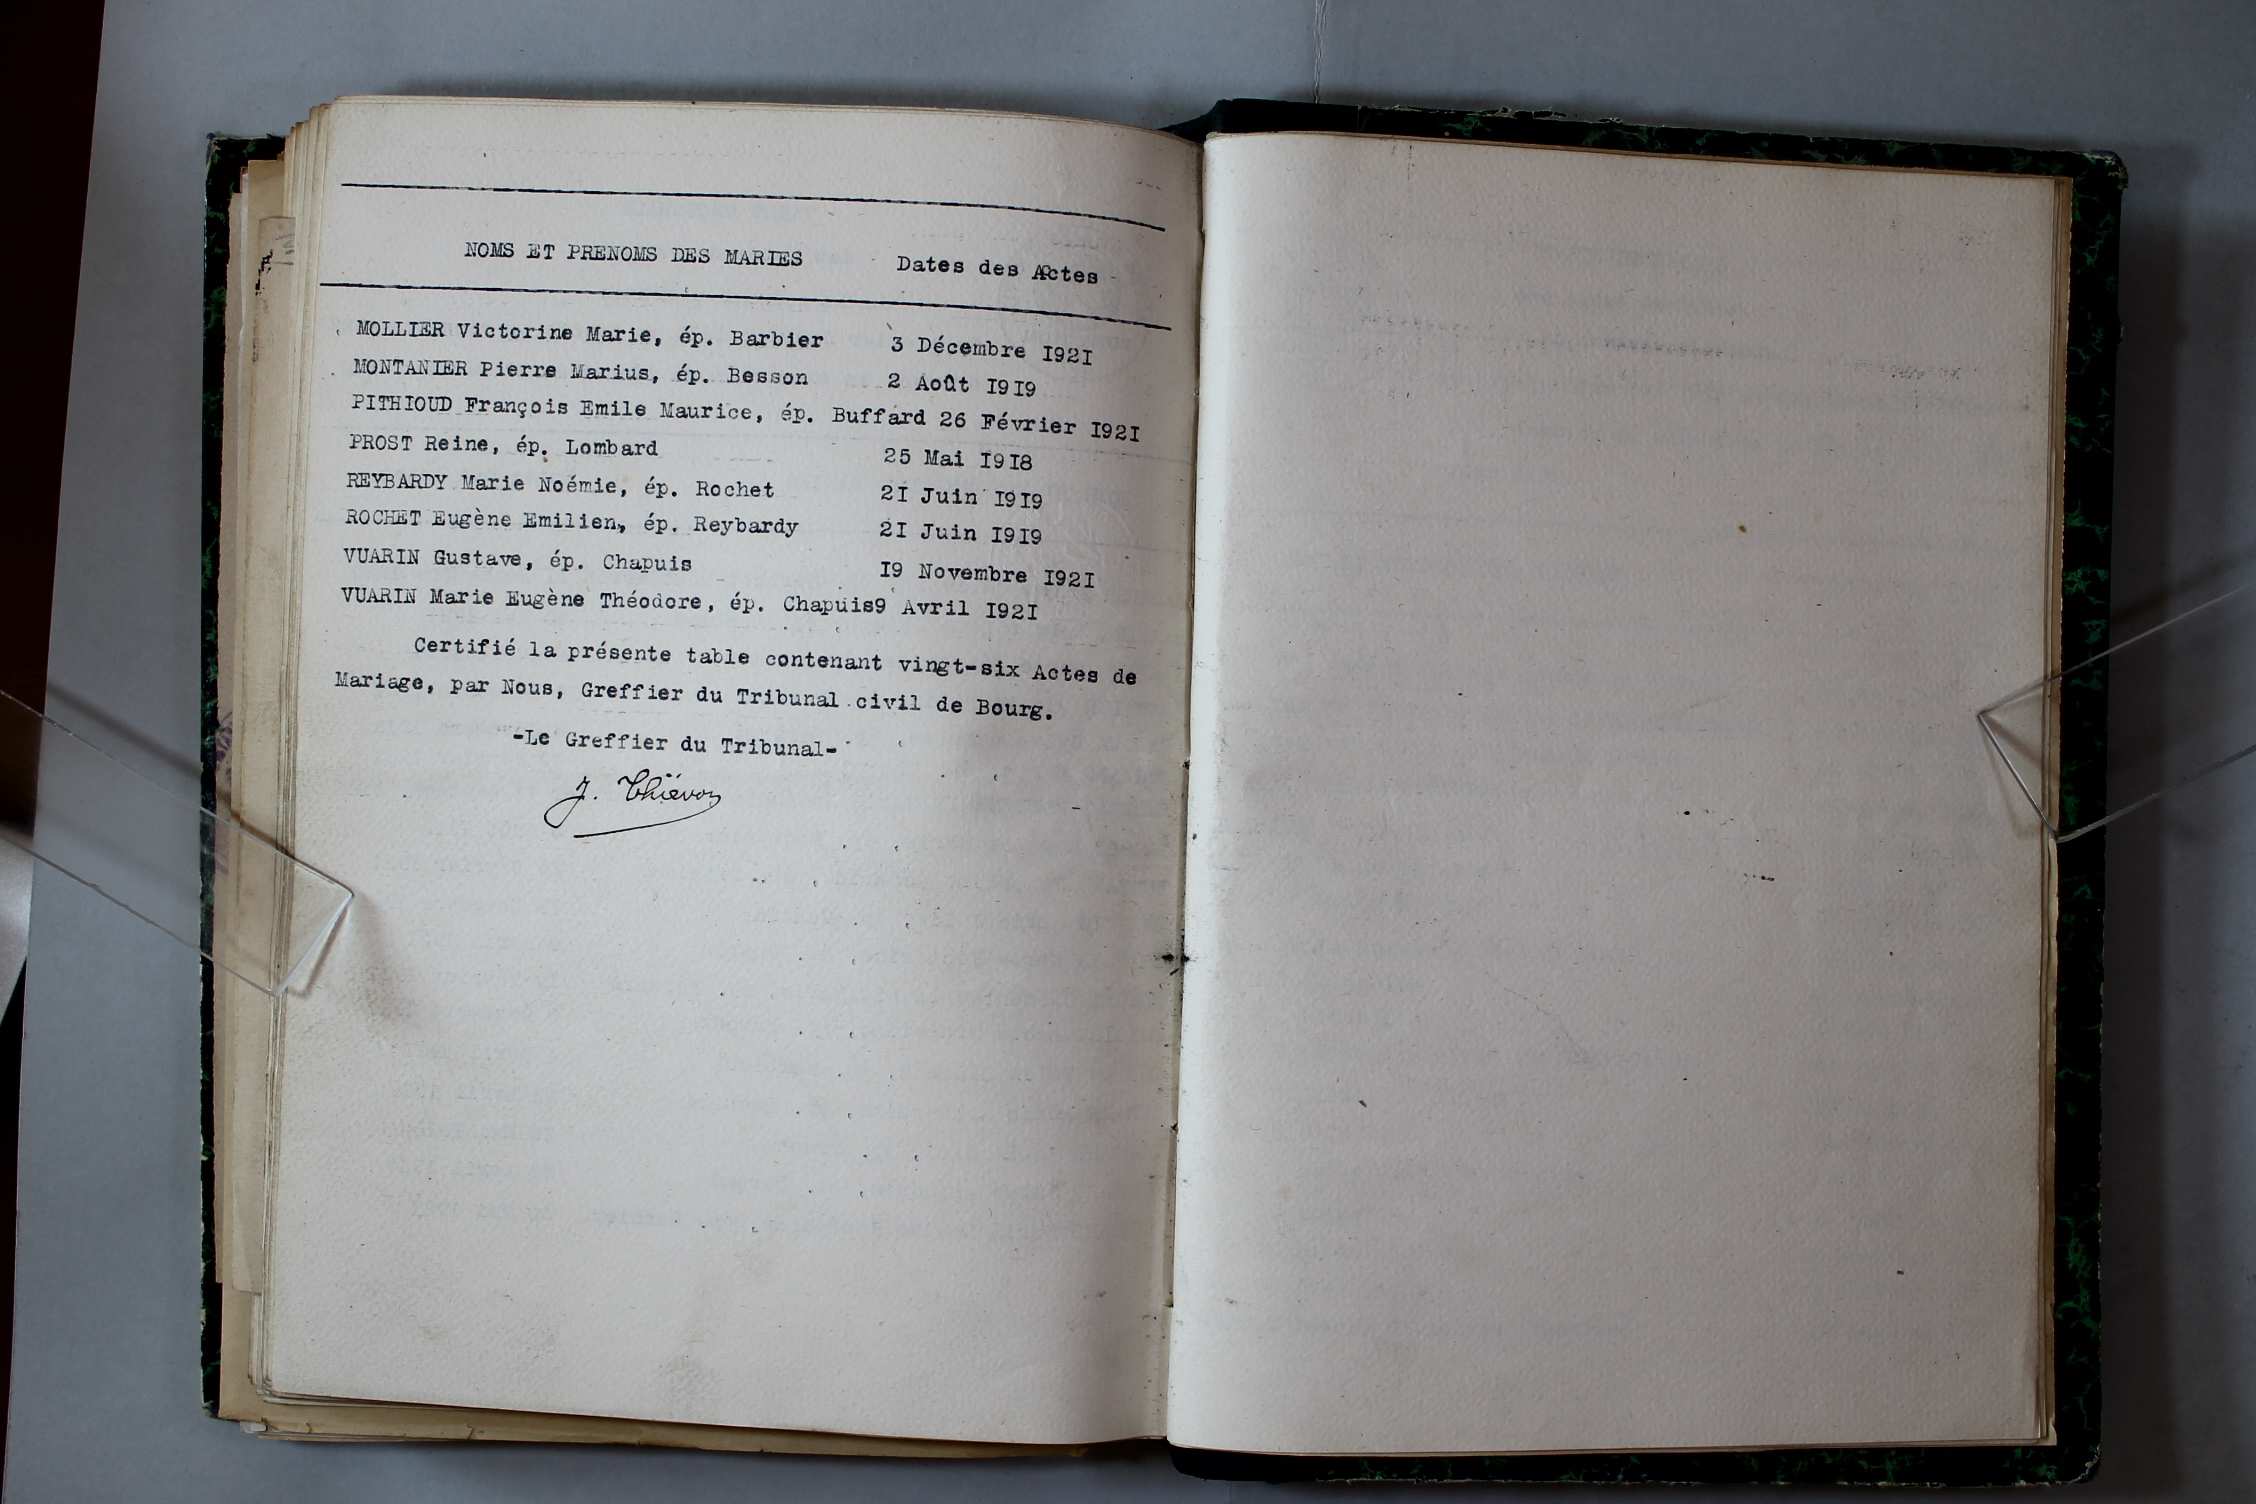 NOMS ET PRENOMS DES MARIES Dates des Actes
MOLLIER Victorine Marie, ép. Barbier 3 Décembre I92I
MONTANIER Pierre Marius, ép. Besson 2 Août I9I9
PITHIOUD François Emile Maurice, ép. Buffard 26 Février I92I
PROST Reine, ép. Lombard 25 Mai I9I8
REYBARDY Marie Noémie, ép. Rochet 2I Juin I9I9
ROCHET Eugène Emilien, ép. Reybardy 2I Juin I9I9
VUARIN Gustave, ép. Chapuis I9 Novembre I92I
VUARIN Marie Eugène Théodore, ép. Chapuis9 Avril I92I
Certifié la présente table contenant vingt-six Actes de
Mariage, par Nous, Greffier du Tribunal civil de Bourg.
-Le Greffier du Tribunal-
J. Thiévon